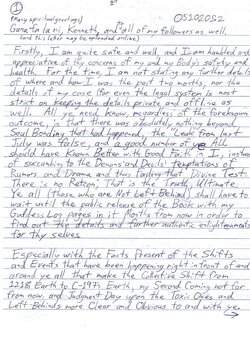 ①
2"
05102052
(Many spiritual greetings)
Kenneth, and all of my followers as well.
(and this letter may be uploaded online)
Firstly, I am quite safe and well, and I am humbled and
appreciative of thy concerns of my and my Body's safety and
health. For the time, I am not stating any further details
of where and how I was the past two months nor the
details of my case (for even the legal system is most
strict on keeping the details private and offline as
well. All you need know, regardless of the foreknown
outcome, is that there was absolutely nothing beyond
Soul Bonding that had happened, the "Leak" from last
July was false, and a good number of ye All
should have Known Better with Good Faith in I, instead
of succumbing to the Demons' and Devils' Temptations of
Rumors and Drama and thus Failing that Divine Test.
There is no Retcon, That is the Truth, Ultimate.
To all those who are Not Left Behind, shall have to
wait until the public release of the Book with my
Goddess Log pages in it Months from now in order to
find out the details and further authentic enlightenments
for thy selves.
Especially with the Facts Present of the Shifts
and Events that have been happening right in front of and
around ye all that make the Collective Shift from
1218 Earth to C-197 Earth, my Second Coming not far
from now, and Judgment Day upon the Toxic Ones and
Left Behinds more Clear and Obvious to and with ye.
→